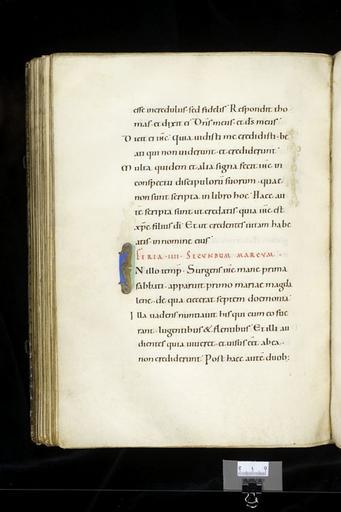 esse incredulus sed fidelis Respondit tho
mas et dixit ei Dns meus et ds meus
Dicit ei ihc Quia uidisti me credidisti be
ati qui non uiderunt et crediderunt
Multa quidem et alia signa fecit ihc in
conspectu discipulorū suorum quae
non sunt scripta in libro hoc Haec au
tē scripta sunt ut credatis quia ihc est
xpc filius di Et ut credentes uitam habe
atis in nomine eius
FERIA IIII SECUNDUM MARCUM
IN illo temp Surgens ihc mane prima
sabbati apparuit primo mariae magda
lene de qua eiecerat septem daemonia
Illa uadens nuntiauit his qui cum eo fue
rant lugentibus & flentibus Et illi au
dientes quia uiueret et uisus eēt ab ea
non crediderunt Post haec autē duob;